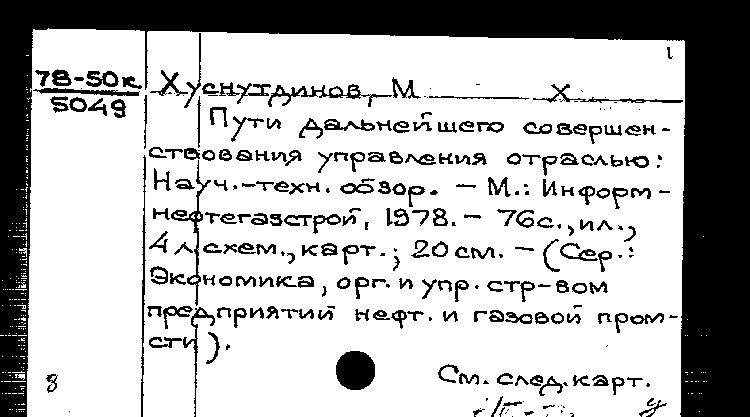 1
78-50к
5049
Хуснутдинов, М Х
Пути дальнейшего совершен-
ствования управления отраслью:
Науч.-техн. обзор. — М.: Информ-
нефтегазстрой, 1978. — 76с., ил.,
4 л.схем., карт.; 20 см. — (Сер.:
Экономика, орг. и упр. стр-вом
предприятий нефт. и газовой пром-
сти).
8
См. след. карт.